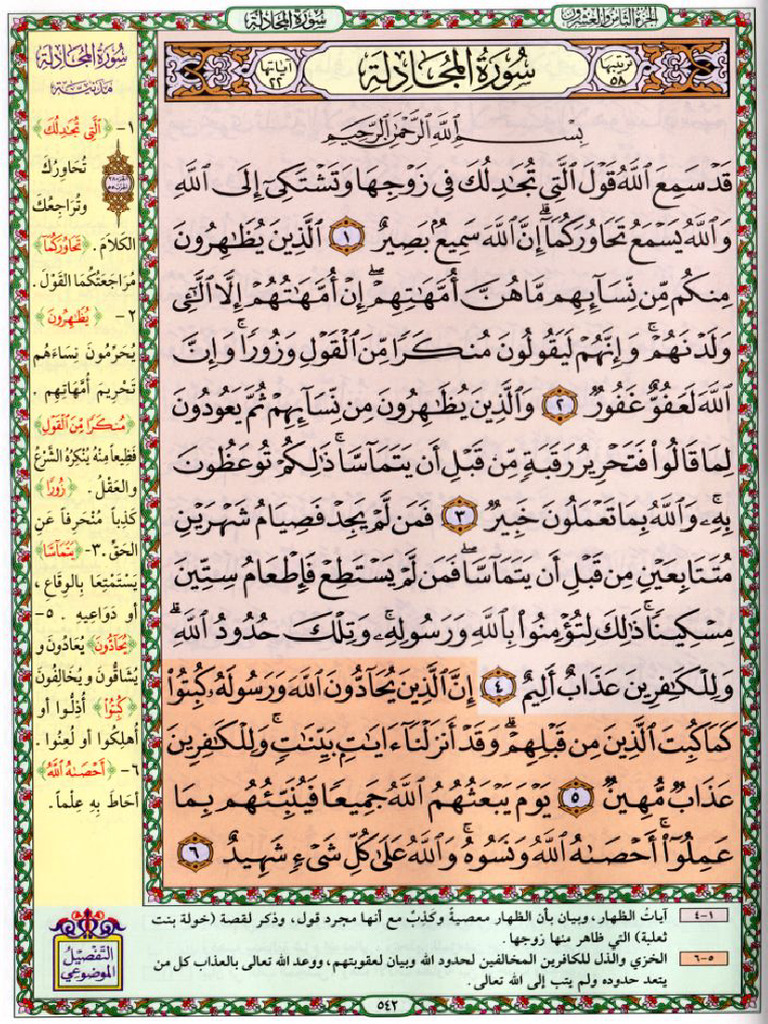 الجزء الثامن والعشرون
سورة المجادلة
ترتيبها ٥٨
سُورَةُ المُجَادلَةِ
آياتها ٢٢
بِسْمِ اللَّهِ الرَّحْمَٰنِ الرَّحِيمِ
قَدْ سَمِعَ اللَّهُ قَوْلَ الَّتِي تُجَادِلُكَ فِي زَوْجِهَا وَتَشْتَكِي إِلَى اللَّهِ
وَاللَّهُ يَسْمَعُ تَحَاوُرَكُمَا إِنَّ اللَّهَ سَمِيعٌ بَصِيرٌ ١ الَّذِينَ يُظَاهِرُونَ
مِنكُم مِّن نِّسَائِهِم مَّا هُنَّ أُمَّهَاتِهِمْ إِنْ أُمَّهَاتُهُمْ إِلَّا اللَّائِي
وَلَدْنَهُمْ وَإِنَّهُمْ لَيَقُولُونَ مُنكَرًا مِّنَ الْقَوْلِ وَزُورًا وَإِنَّ
اللَّهَ لَعَفُوٌّ غَفُورٌ ٢ وَالَّذِينَ يُظَاهِرُونَ مِن نِّسَائِهِمْ ثُمَّ يَعُودُونَ
لِمَا قَالُوا فَتَحْرِيرُ رَقَبَةٍ مِّن قَبْلِ أَن يَتَمَاسَّا ذَٰلِكُمْ تُوعَظُونَ
بِهِ وَاللَّهُ بِمَا تَعْمَلُونَ خَبِيرٌ ٣ فَمَن لَّمْ يَجِدْ فَصِيَامُ شَهْرَيْنِ
مُتَتَابِعَيْنِ مِن قَبْلِ أَن يَتَمَاسَّا فَمَن لَّمْ يَسْتَطِعْ فَإِطْعَامُ سِتِّينَ
مِسْكِينًا ذَٰلِكَ لِتُؤْمِنُوا بِاللَّهِ وَرَسُولِهِ وَتِلْكَ حُدُودُ اللَّهِ
وَلِلْكَافِرِينَ عَذَابٌ أَلِيمٌ ٤ إِنَّ الَّذِينَ يُحَادُّونَ اللَّهَ وَرَسُولَهُ كُبِتُوا
كَمَا كُبِتَ الَّذِينَ مِن قَبْلِهِمْ وَقَدْ أَنزَلْنَا آيَاتٍ بَيِّنَاتٍ وَلِلْكَافِرِينَ
عَذَابٌ مُّهِينٌ ٥ يَوْمَ يَبْعَثُهُمُ اللَّهُ جَمِيعًا فَيُنَبِّئُهُم بِمَا
عَمِلُوا أَحْصَاهُ اللَّهُ وَنَسُوهُ وَاللَّهُ عَلَىٰ كُلِّ شَيْءٍ شَهِيدٌ ٦
سُورَة المُجَادلَة
مَدَنيَّة
١- ﴿الَّتِي تُجَادِلُكَ﴾
تُحَاوِرُكَ
وتُرَاجِعُكَ
الكَلَامَ. ﴿تَحَاوُرَكُمَا﴾
مُرَاجَعَتَكُمَا القَوْلَ.
٢- ﴿يُظَاهِرُونَ﴾
يُحَرِّمُونَ نِسَاءَهُم
تَحْرِيمَ أُمَّهَاتِهِم.
﴿مُنكَرًا مِّنَ القَوْلِ﴾
فَظِيعاً مِنهُ يُنْكِرُهُ الشَّرْعُ
والعَقْلُ. ﴿زُورًا﴾
كَذِباً مُنْحَرِفاً عَنِ
الحَقِّ. ٣- ﴿يَتَمَاسَّا﴾
يَسْتَمْتِعَا بِالوِقَاعِ،
أو دَوَاعِيهِ. ٥-
﴿يُحَادُّونَ﴾ يُعَادُونَ و
يُشَاقُّونَ و يُخَالِفُونَ
﴿كُبِتُوا﴾ أُذِلُّوا أو
أُهلِكُوا أو لُعِنُوا.
٦- ﴿أَحْصَاهُ اللَّهُ﴾
أحَاطَ بِهِ عِلْماً.
التَّفْصِيْلُ
الموضوعي
٤-١ آيَاتُ الظهار، وبيان بأن الظهار معصيةٌ وكَذِبٌ مع أنها مجرد قول، وذكر لقصة (خولة بنت
ثعلبة) التي ظاهر منها زوجها.
٦-٥ الخزي والذل للكافرين المخالفين لحدود الله وبيان لعقوبتهم، ووعد الله تعالى بالعذاب كل من
يتعد حدوده ولم يتب إلى الله تعالى.
٥٤٢